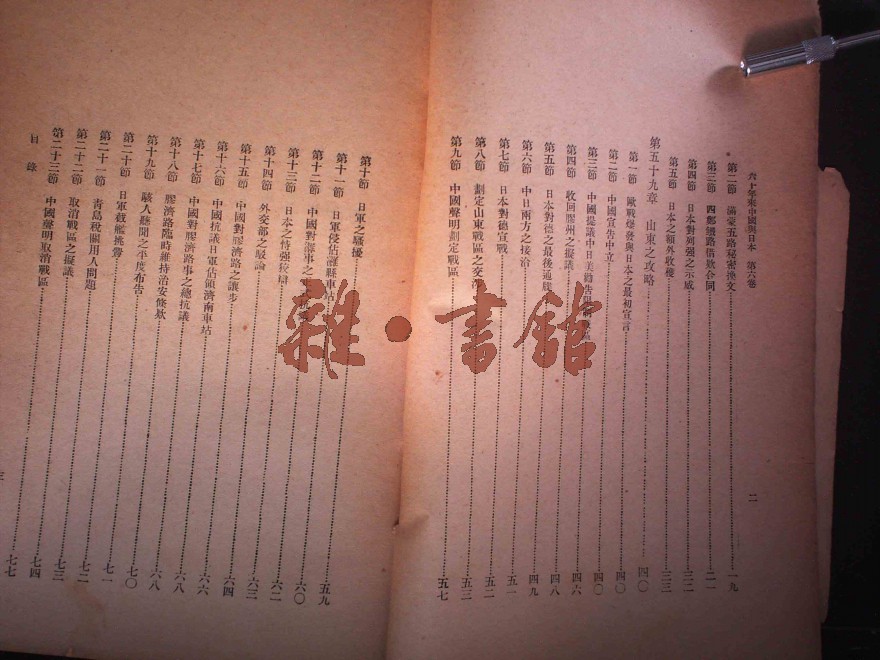 六十年來中國與日本 第六卷 二
第二節 滿蒙五路秘密換文 一九
第三節 四鄭鐵路借款合同 二一
第四節 日本對列强之示威 三二
第五節 日本之額外收穫 三三
第五十九章 山東之攻略 四〇
第一節 歐戰爆發與日本之最初宣言 四〇
第二節 中國宣告中立 四〇
第三節 中國提議中日美勸告 四六
第四節 收回膠州之擬議 四八
第五節 日本對德之最後通牒 四九
第六節 中日兩方之接洽 五一
第七節 日本對德宣戰 五二
第八節 劃定山東戰區之交涉 五三
第九節 中國聲明劃定戰區 五七
第十節 日軍之騷擾 五九
第十一節 日軍侵佔濰縣車站 六〇
第十二節 中國對濰事之 六二
第十三節 日本之恃强狡辯 六三
第十四節 外交部之駁論 六四
第十五節 中國對膠濟路之讓步 六六
第十六節 中國抗議日軍佔領濟南車站 六八
第十七節 中國對膠濟路事之總抗議 六八
第十八節 膠濟路臨時維持治安條欵 七〇
第十九節 駭人聽聞之平度布告 七一
第二十節 日軍截艦挑釁 七二
第二十一節 青島稅關用人問題 七三
第二十二節 取消戰區之擬議 七四
第二十三節 中國聲明取消戰區 七七
目錄 三
雜·書館